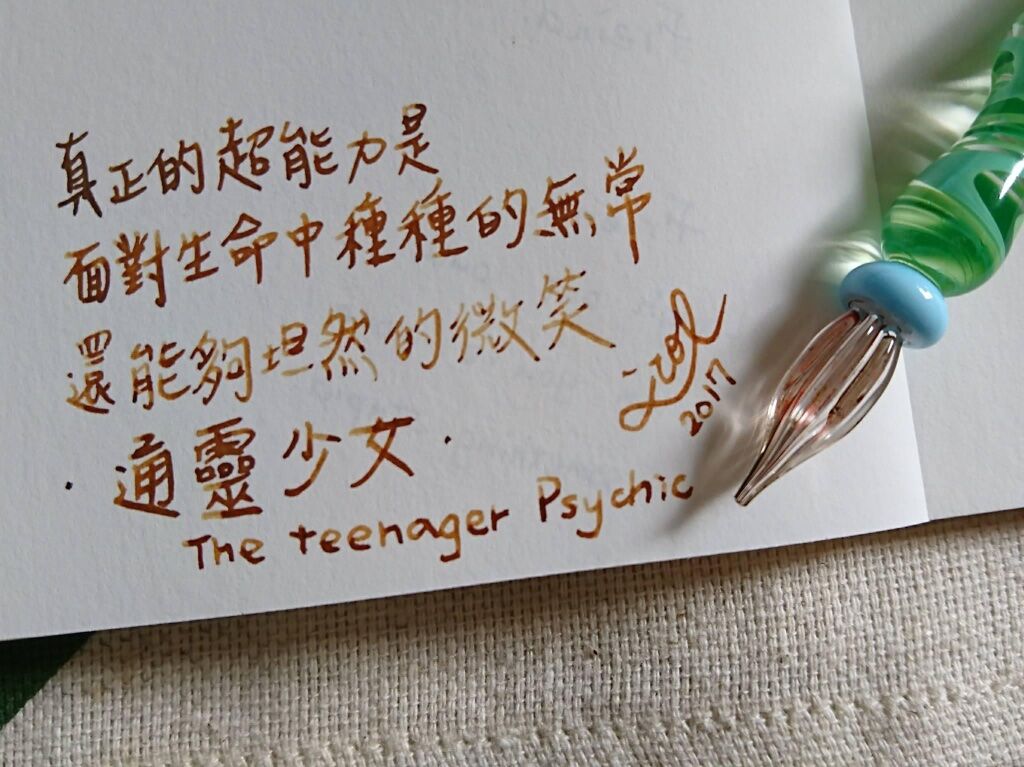 真正的超能力是
面對生命中種種的無常
還能夠坦然的微笑
·通靈少女·
The teenager Psychic
2017